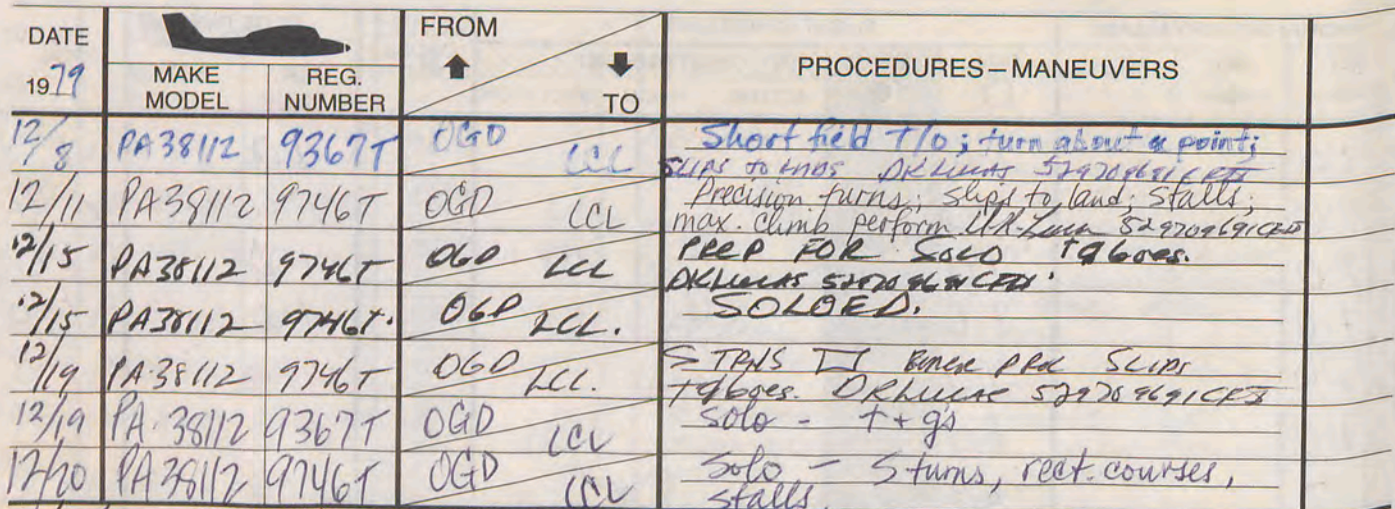 DATE FROM
1979 MAKE MODEL REG. NUMBER TO PROCEDURES—MANEUVERS
12/8 PA38112 9367T OGD LCL Short field T/o; turn about a point;
SLIPS to LNDS DRLucas 529709691CFII
12/11 PA38112 9746T OGD LCL Precision turns; slips to land; Stalls;
max. climb perform. 529709691CFII
12/15 PA38112 9746T OGD LCL PREP FOR SOLO T&Goes.
DRLucas 529709691CFII
12/15 PA38112 9746T. OGD LCL. SOLOED.
12/19 PA-38112 9746T OGD LCL. S TRNS PROC SLIPS
T&Goes. DRLucas 529709691CFII
12/19 PA-38112 9367T OGD LCL Solo - T+g's
12/20 PA38112 9746T OGD LCL Solo - S turns, rect. courses,
stalls.